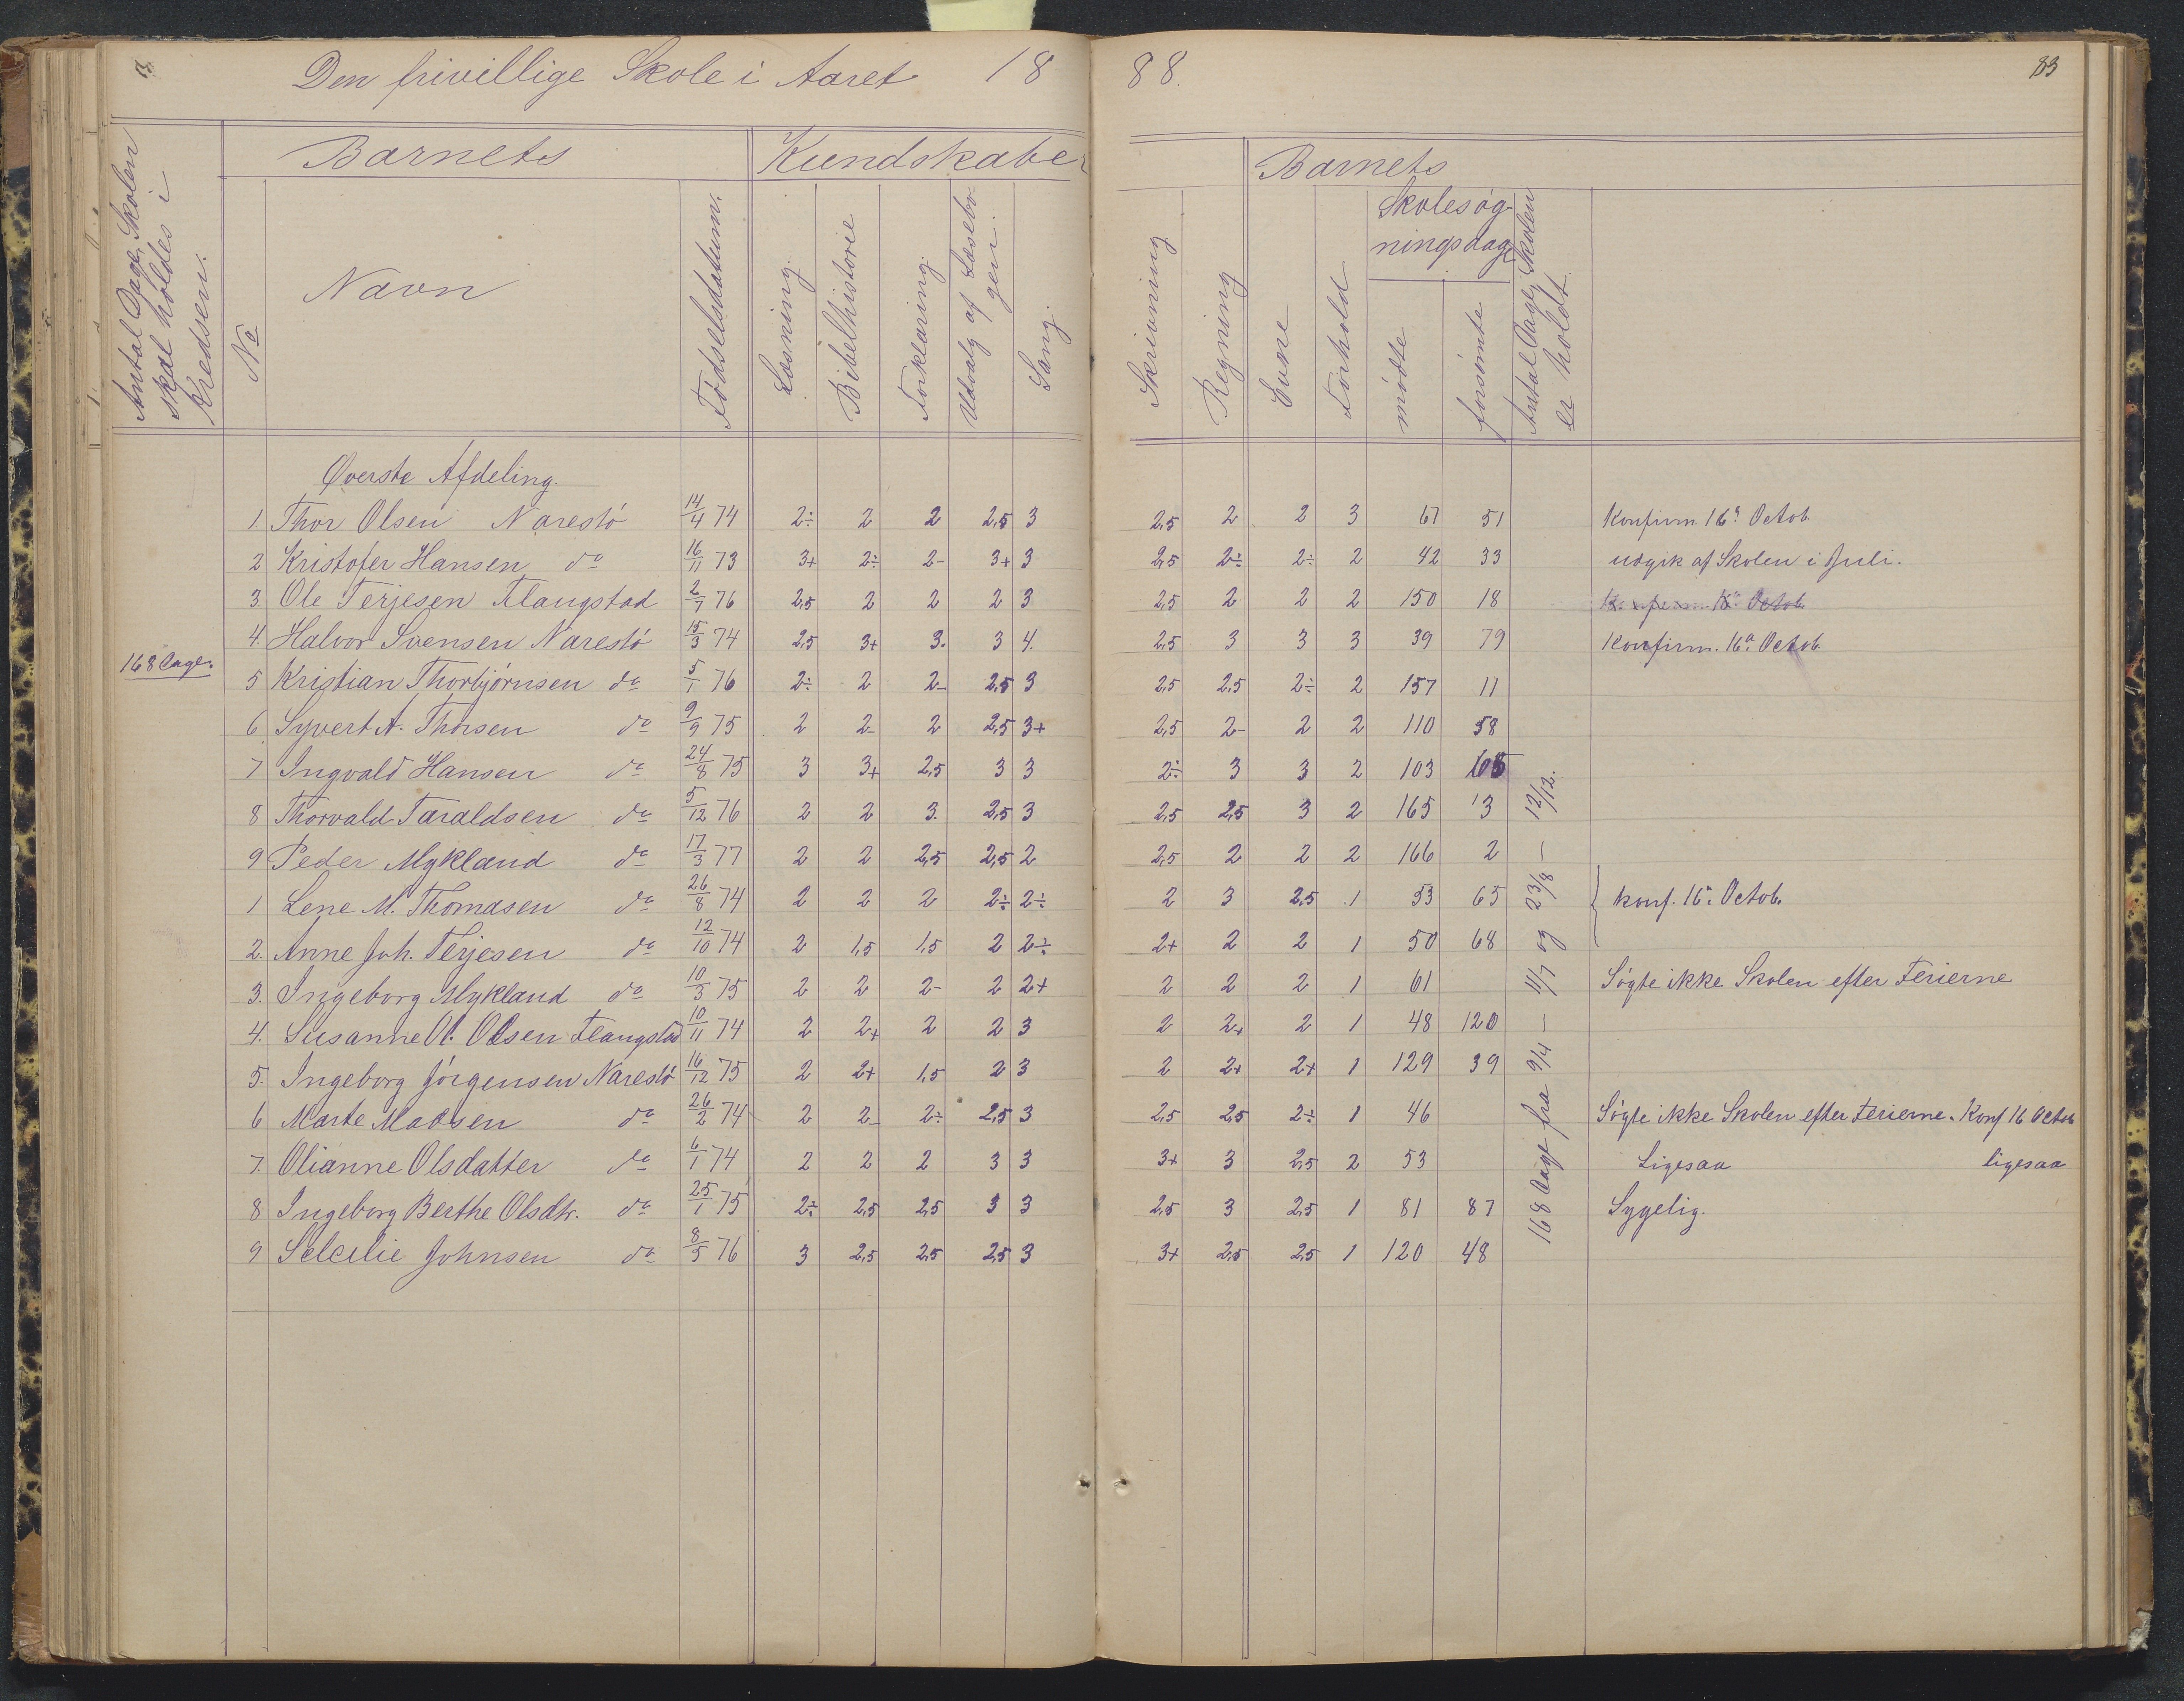 Den frivillige Skole i Aaret 1888.
83
Antal Dage, Skolen skal holdes i Kredsen.
Barnets
Kundskaber
Barnets
No
Navn
Fødselsdatum.
Læsning.
Bibelhistorie
Forklaring.
Udvalg af Læsebogen.
Sang.
Skrivning
Regning
Evne
Forhold
Skolesøgningsdage
mødte
forsømte
Antal Dage, Skolen er holdt.
Øverste Afdeling.
168 Dage.
168 Dage fra 9/4 — 11/7 og 23/8 — 12/12.
1. Thor Olsen Narestø 14/4 74 2÷ 2 2 2,5 3 2,5 2 2 3 67 51 Konfirm. 16de Octob.
2 Kristofer Hansen do 16/11 73 3+ 2÷ 2- 3+ 3 2,5 2÷ 2÷ 2 42 33 udgik af Skolen i Juli.
3. Ole Terjesen Flangstad 2/7 76 2,5 2 2 2 3 2,5 2 2 2 150 18
4. Halvor Svensen Narestø 15/3 74 2,5 3+ 3. 3 4. 2,5 3 3 3 39 79 Konfirm. 16de Octob.
5 Kristian Thorbjørnsen do 5/1 76 2÷ 2 2- 2,5 3 2,5 2,5 2÷ 2 157 11
6 Syvert A. Thorsen do 9/9 75 2 2- 2 2,5 3+ 2,5 2- 2 2 110 58
7 Ingvald Hansen do 24/8 75 3 3+ 2,5 3 3 2÷ 3 3 2 103 65
8 Thorvald Taraldsen do 5/12 76 2 2 3. 2,5 3 2,5 2,5 3 2 165 3
9 Peder Mykland do 17/3 77 2 2 2,5 2,5 2 2,5 2 2 2 166 2
1 Lene M. Thomasen do 26/8 74 2 2 2 2÷ 2÷ 2 3 2,5 1 53 65 konf. 16de Octob.
2. Anne Joh. Terjesen do 12/10 74 2 1,5 1,5 2 2÷ 2+ 2 2 1 50 68
3. Ingeborg Mykland do 10/3 75 2 2 2- 2 2+ 2 2 2 1 61 Søgte ikke Skolen efter Ferierne
4. Susanne O. Olsen Flangstad 10/11 74 2 2+ 2 2 3 2 2+ 2 1 48 120
5. Ingeborg Jørgensen Narestø 16/12 75 2 2+ 1,5 2 3 2 2+ 2+ 1 129 39
6 Marte Madsen do 26/2 74 2 2- 2÷ 2,5 3 2,5 2,5 2÷ 1 46 Søgte ikke Skolen efter Ferierne. Konf 16 Octob
7. Olianne Olsdatter do 6/1 74 2 2 2 3 3 3+ 3 2,5 2 53 Ligesaa ligesaa
8 Ingeborg Berthe Olsdtr. do 25/1 75 2÷ 2,5 2,5 3 3 2,5 3 2,5 1 81 87 Sygelig.
9 Selcilie Johnsen do 8/5 76 3 2,5 2,5 2,5 3 3+ 2,5 2,5 1 120 48